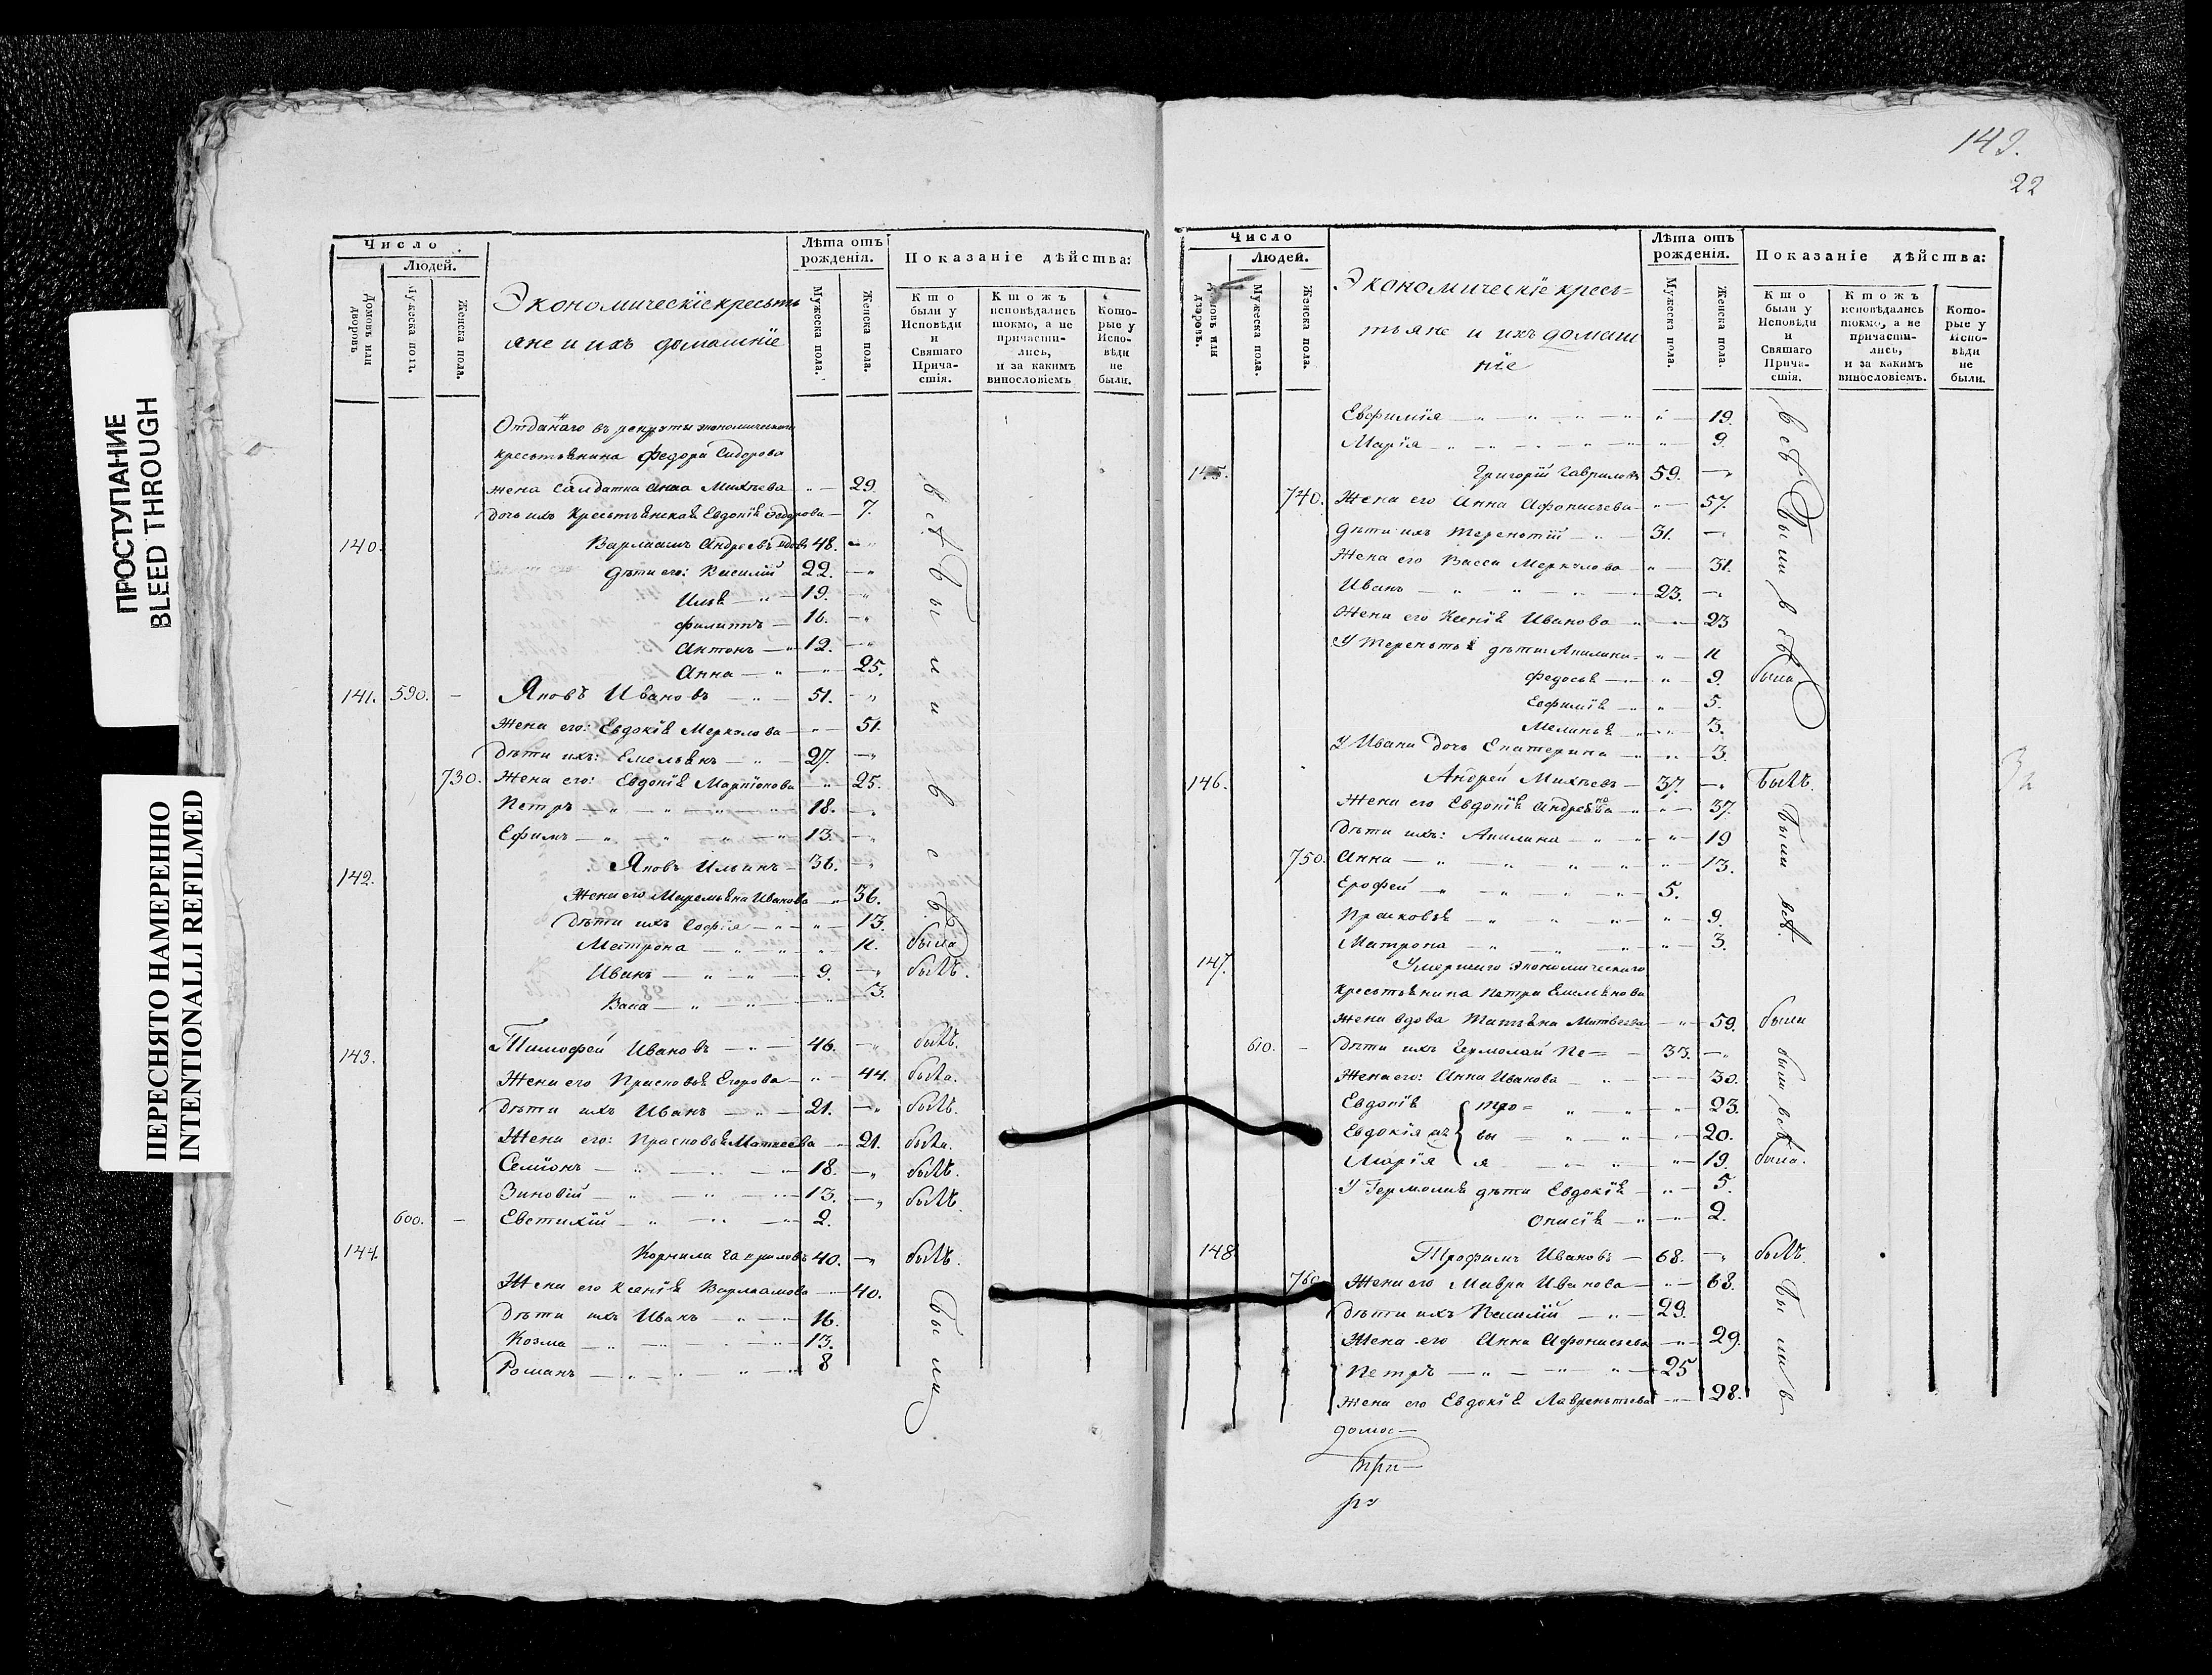 ПРОСТУПАНИЕ
BLEED THROUGH
ПЕРЕСНЯТО НАМЕРЕННО
INTENTIONALLI REFILMED
Число
Людей.
Домовъ или дворовъ
Мужеска полъ.
Женска пола.
Экономическіе кресьть
яне и ихъ домашніе
Лѣта отъ рожденія.
Мужеска пола.
Женска пола.
Показаніе дѣйства:
Кто были у Исповѣди и Святаго Прича-стія.
Ктожъ исповѣдались токмо, а не причасти-лись, и за какимъ винословіемъ
Кото-рые у Испо-вѣди не были.
Отданаго въ рекруты экономическаго
кресьтьянина Федора Сидорова
жена Салдатка Анна Михѣева 29.
дочь ихъ Кресьтьянская Евдокія Федорова 7.
всѣ были всѣ
140. Варлаамъ Андреевъ вдовъ 48.
дѣти его: Василій 22.
Илья 19.
Филиппъ 16.
Антонъ 12.
Анна 25.
141. 590. Яковъ Ивановъ 51.
Жена его: Евдокія Меркулова 51.
Дѣти ихъ: Емельянъ 27.
730. Жена его: Евдокія Мартіонова 25.
Петръ 18.
Ефимъ 13.
142. Яковъ Ильинъ 36.
Жена его Маремьяна Иванова 36.
Дѣти ихъ Софія 13.
Матрона 11. была
Иванъ 9. былъ.
Васа 3.
143. Тимофей Ивановъ 46. былъ.
Жена его Прасковья Егорова 44. была.
Дѣти ихъ Иванъ 21. былъ.
Жена его: Прасковья Матвеева 21. была.
Семіонъ 18. былъ.
Зиновій 13. былъ.
600. Евстихій 2.
144. Корнила Гавриловъ 40. былъ.
Жена его Ксенія Варлаамова 40.
Дѣти ихъ Иванъ 16.
Козма 13.
Романъ 8
были
149.
22
Число
Людей.
Домовъ или дворовъ.
Мужеска пола.
Женска пола.
Экономическіе кресь=
тьяне и ихъ домаш
ніе
Лѣта отъ рожденія.
Мужеска пола.
Женска пола.
Показаніе дѣйства:
Кто были у Исповѣди и Святаго Прича-стія.
Ктожъ исповѣдались токмо, а не причасти-лись, и за какимъ винословіемъ.
Кото-рые у Испо-вѣди не были.
Евфимія 19.
Марія 9.
всѣ были всѣ
145. Григорій Гавриловъ 59.
740. Жена его Анна Афонасьева 57.
дѣти ихъ Терентій 31.
Жена его Васса Меркулова 31.
Иванъ 23.
Жена его Ксенія Иванова 23
У Терентья дѣти: Акилина 11
Федосья 9. была
Евфимія 5.
Меланья 3.
У Ивана дочь Екатерина 3.
146. Андрей Михѣевъ 37. Былъ.
Жена его Евдокія Андреева 37.
Дѣти ихъ: Акилина 19
750. Анна 13.
Ерофей 5.
Прасковья 9.
Матрона 3.
были всѣ.
147. Умершаго Экономическаго
кресьтьянина Петра Емельянова
жена вдова Татьяна Матвеева 59. была
610. Дѣти ихъ Ермолай Пе= 33.
Жена его: Анна Иванова 30.
Евдокія тро= 23.
Евдокія вы 20.
Марія я 19. была.
были всѣ
У Ермолая дѣти Евдокія 5.
Онисія 2.
148 Трофимъ Ивановъ 68. былъ.
760 Жена его Мавра Иванова 68.
Дѣти ихъ Василій 29.
Жена его Анна Афонасьева 29.
Петръ 25
Жена его Евдокія Лаврентьева 28.
были
домо